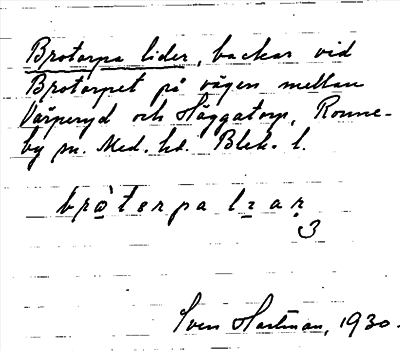 Brotorpa lider, backar vid
Brotorpet på vägen mellan
Värperyd och Häggatorp, Ronne-
by sn. Med. hd. Blek. l.
brotərpa lɪar
3
Sven Hartman, 1930.